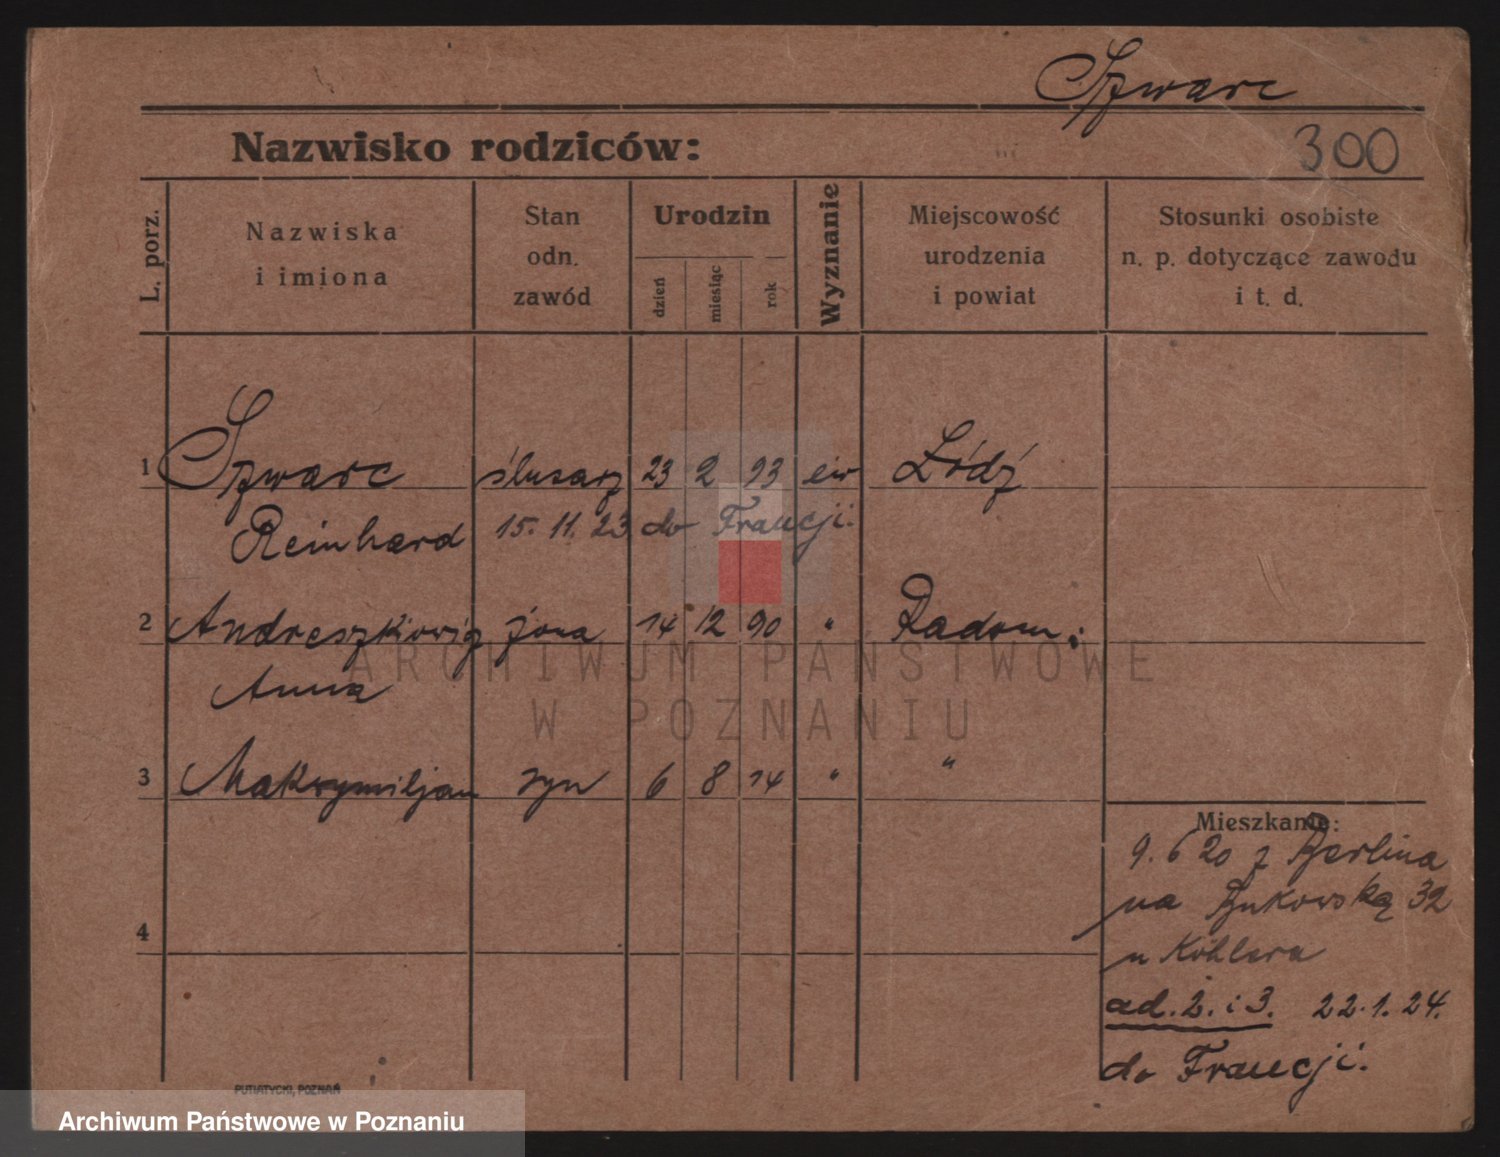 Szwarc
Nazwisko rodziców:
300
L. porz.
Nazwiska
i imiona
Stan
odn.
zawód
Urodzin
dzień
miesiąc
rok
Wyznanie
Miejscowość
urodzenia
i powiat
Stosunki osobiste
n. p. dotyczące zawodu
i t. d.
1 Szwarc ślusarz 23 2 93 ew Łódź
Reinhard 15. 11. 23 do Francji.
2 Andreszkowicz żona 14 12 90 " Radom
Anna
3 Maksymiljan syn 6 8 14 " "
4
Mieszkanie:
9. 6 20 z Berlina
na Bukowską 32
u Köhlera
ad. 2. i 3. 22. 1. 24.
do Francji.
PUTIATYCKI, POZNAŃ
ARCHIWUM PAŃSTWOWE
W POZNANIU
Archiwum Państwowe w Poznaniu